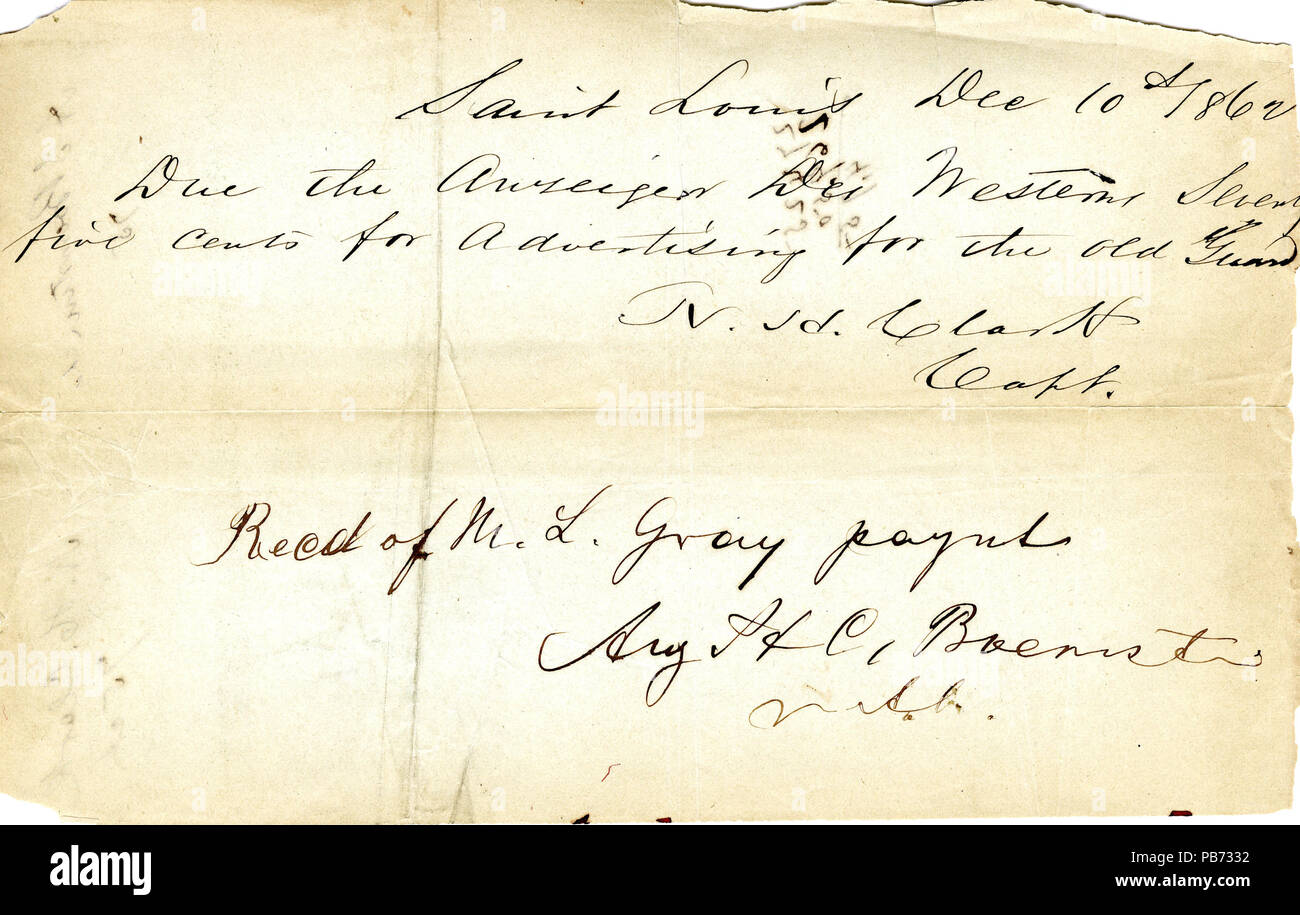 Saint Louis Dec 10th 1862
Due the Anzeiger Des Westens Seventy
five cents for Advertising for the old Guard
N. H. Clark
Capt.
Recd of M. L. Gray paynt
Aug H C, Boernst
alamy
Image ID: PB7332
www.alamy.com